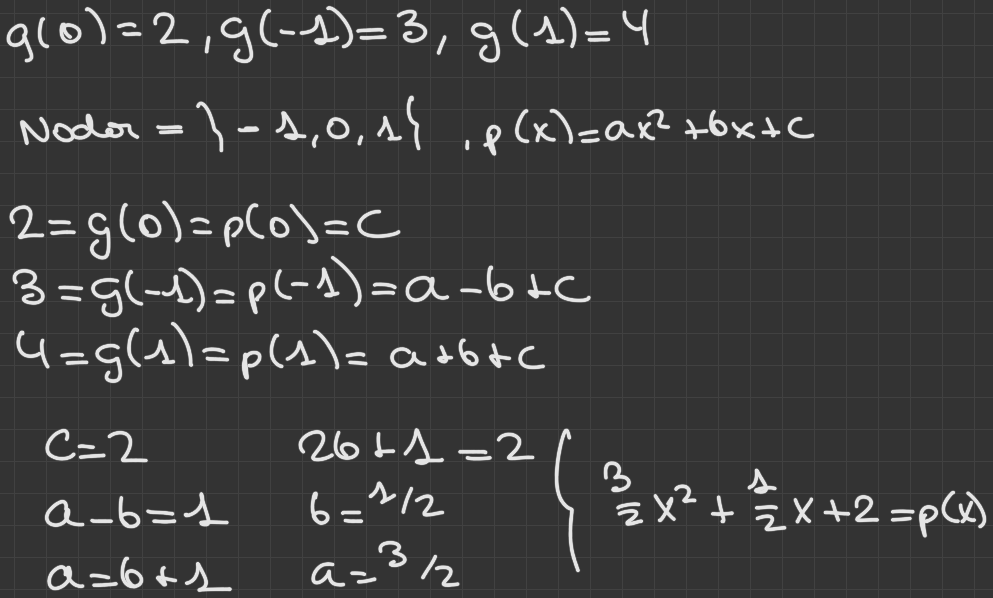 g(0)=2, g(-1)=3, g(1)=4
Nodos = }-1,0,1{ , p(x)=ax²+bx+c
2=g(0)=p(0)=c
3=g(-1)=p(-1)=a-b+c
4=g(1)=p(1)=a+b+c
c=2
a-b=1
a=b+1
2b+1=2
b=1/2
a=3/2
{ 3/2 x² + 1/2 x + 2 = p(x)